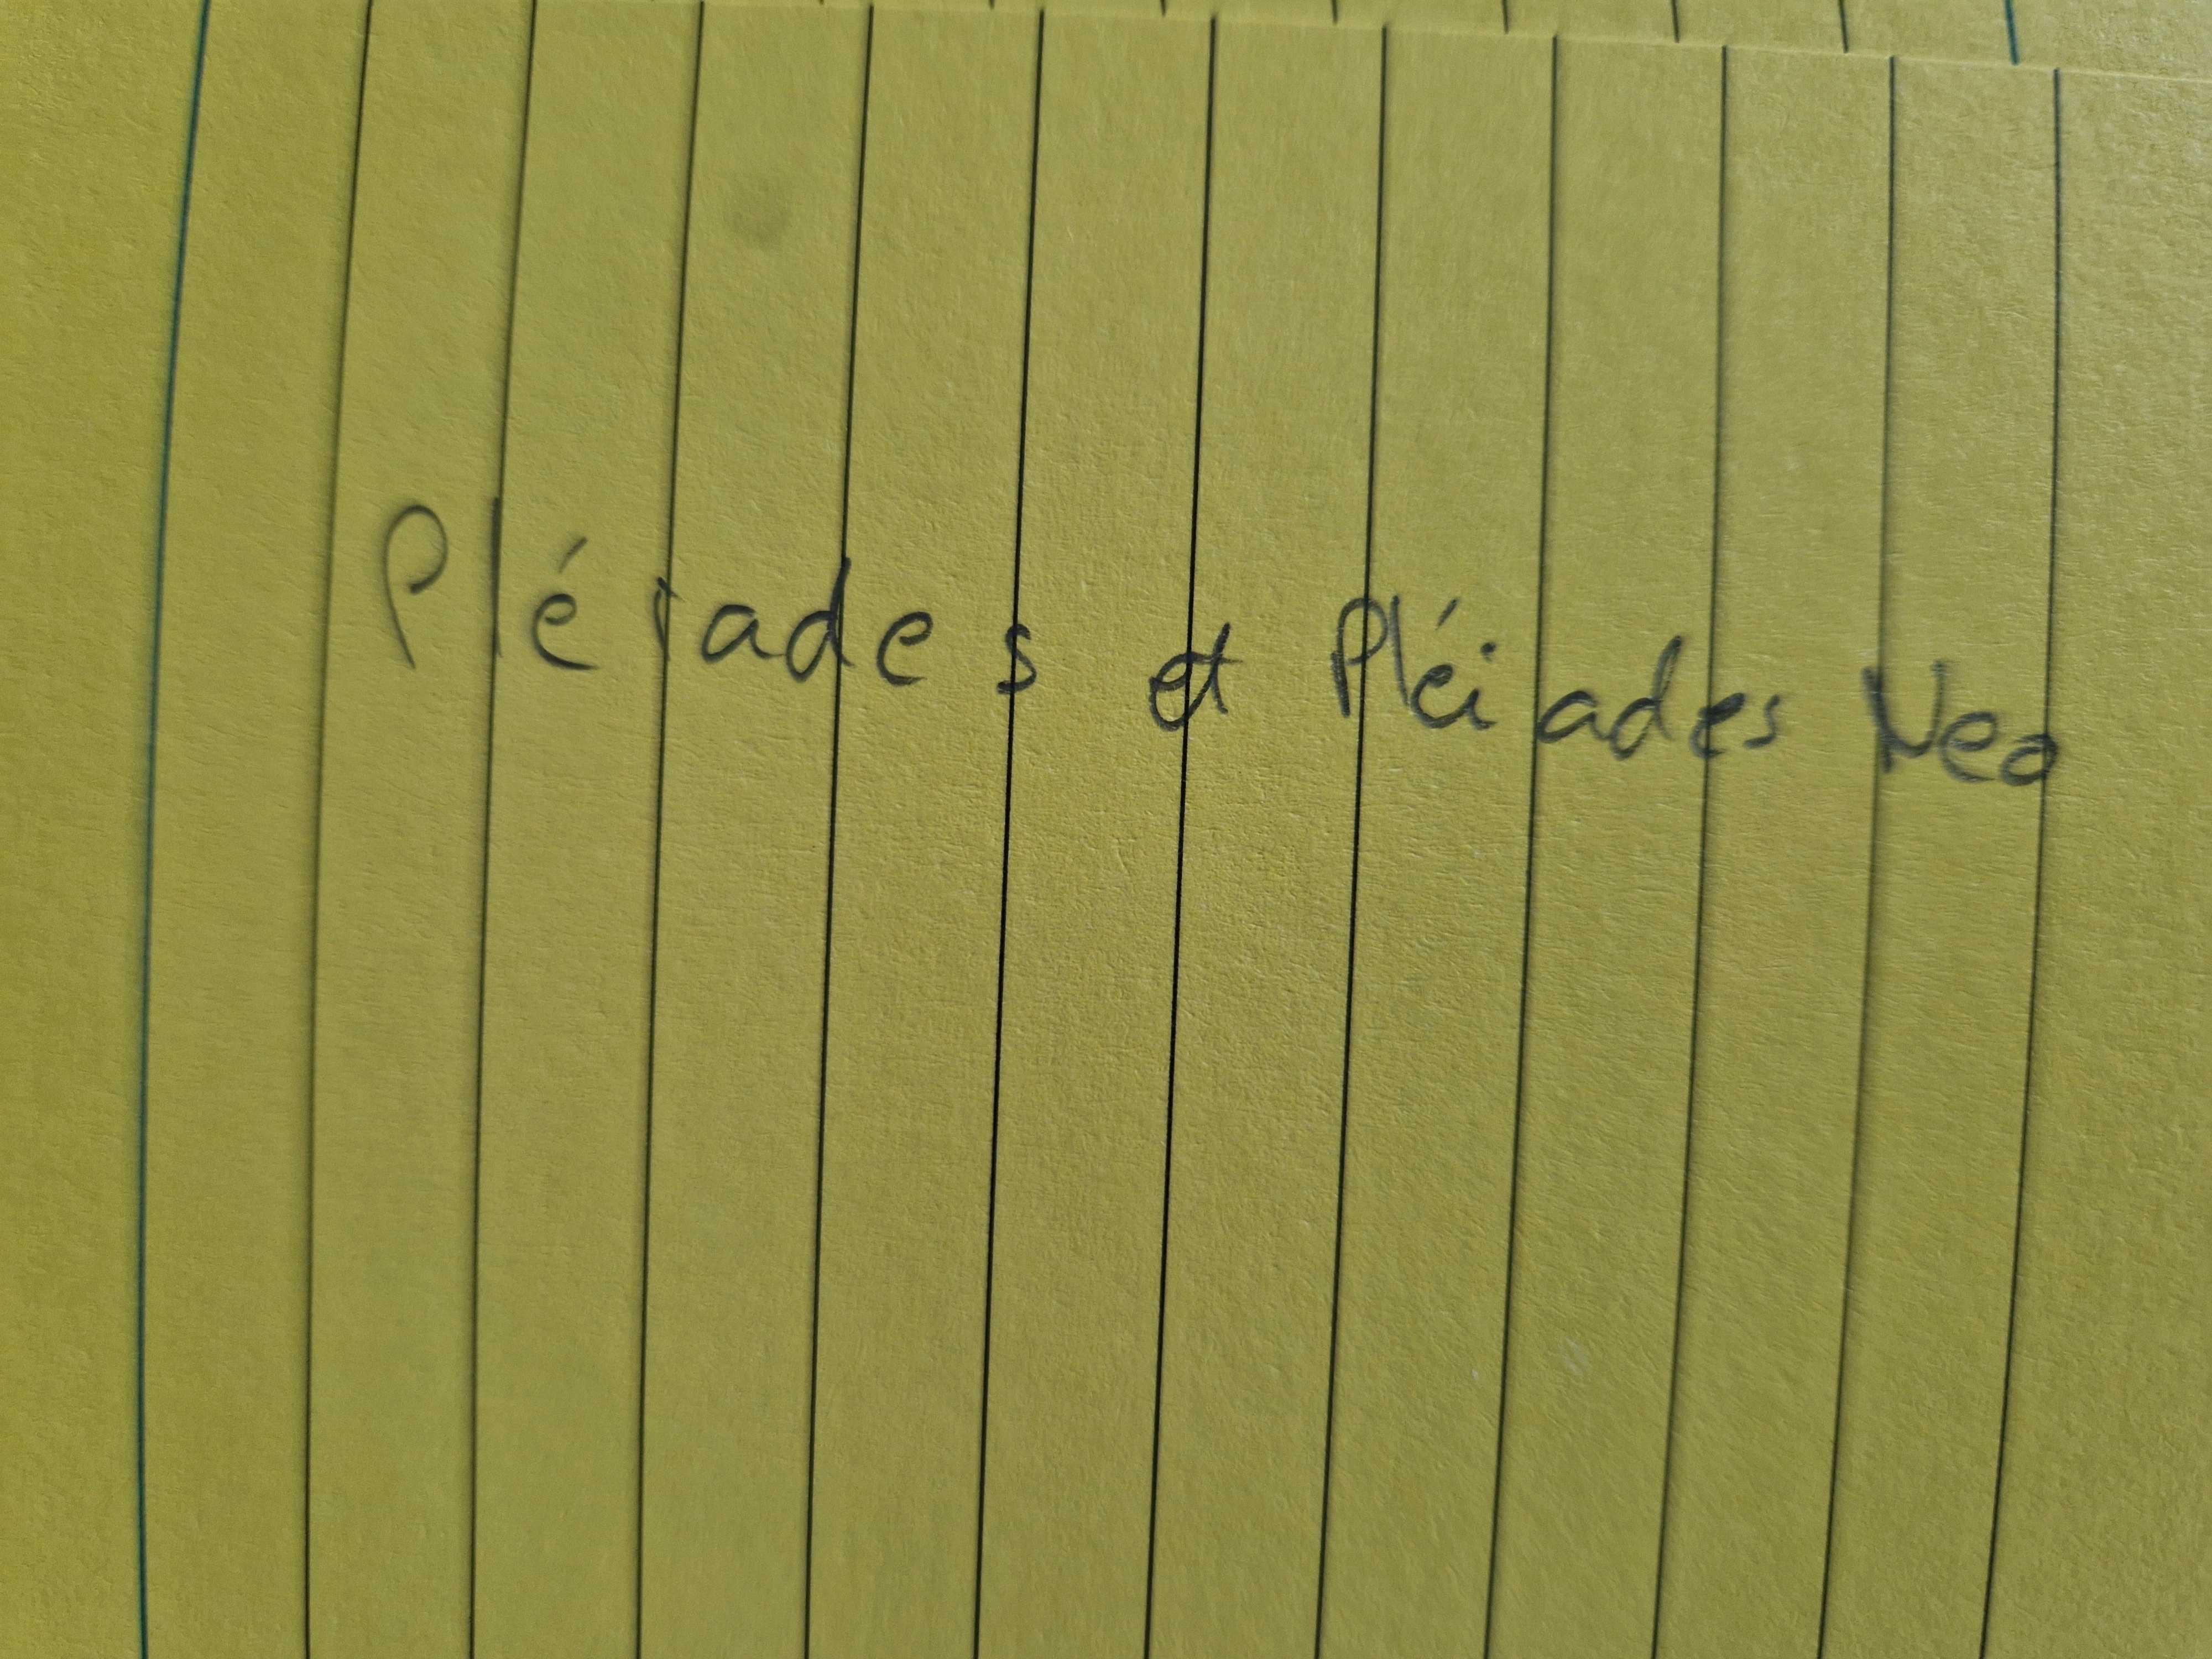 Pléiades et Pléiades Neo